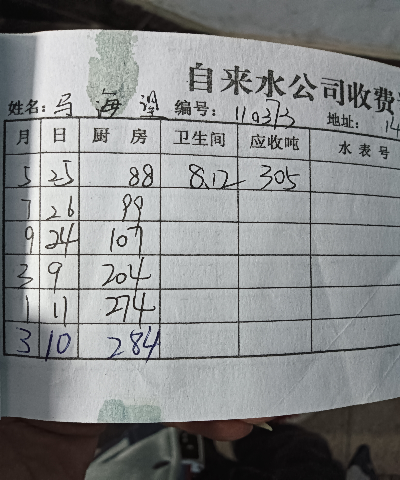 自来水公司收费
姓名: 马海 编号: 110373 地址: 14
月 日 厨房 卫生间 应收吨 水表号
5 25 88 8.12 305
7 26 99
9 24 107
3 9 204
1 11 274
3 10 284